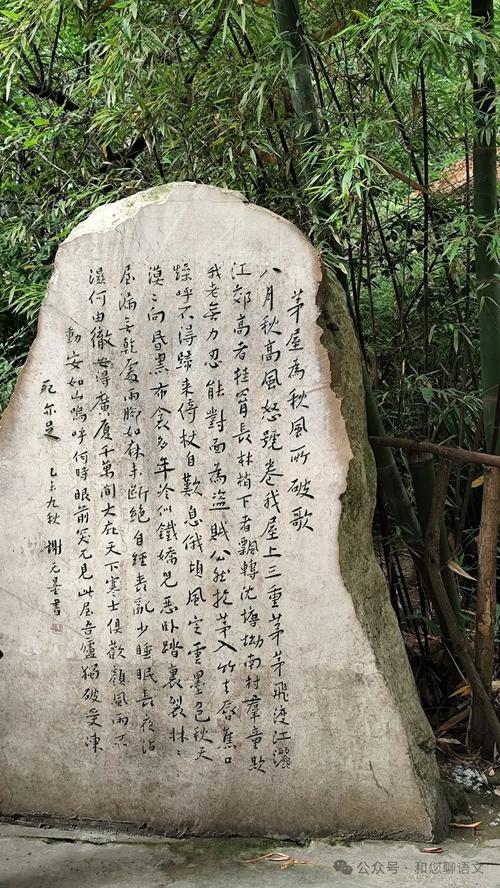 茅屋為秋風所破歌
八月秋高風怒號卷我屋上三重茅茅飛渡江灑
江郊高者挂罥長林梢下者飄轉沈塘坳南村羣童欺
我老無力忍能對面為盜賊公然抱茅入竹去唇焦口
燥呼不得歸來倚杖自歎息俄頃風定雲墨色秋天
漠〻向昏黑布衾多年冷似鐵嬌兒惡臥踏裏裂牀〻
屋漏無乾處雨腳如麻未斷絕自經喪亂少睡眠長夜沾
濕何由徹安得廣廈千萬間大庇天下寒士俱歡顏風雨不
動安如山嗚呼何時眼前突兀見此屋吾廬獨破受凍
死亦足 乙未九秋 謝无量書
公众号 · 和您聊语文